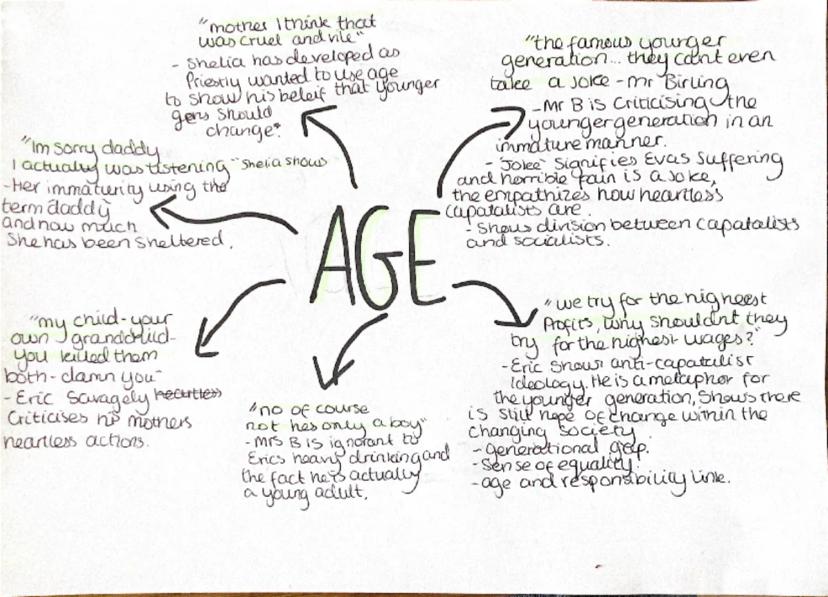 "mother I think that
was cruel and vile"
- Shelia has developed as
Priestly wanted to use age
to show his beleif that younger
gens should
change.
"the famous younger
generation... they cant even
take a joke - Mr Birling
- Mr B is criticising the
younger generation in an
immature manner.
- "Joke" signifies Evas suffering
and horrible pain is a joke,
the empathizes how heartless
capatalists are.
- Shows division between capatalists
and socialists.
"Im sorry daddy
I actually was listening" Shelia shows
- Her immaturity using the
term daddy
and how much
She has been sheltered.
AGE
"my child - your
own grandchild -
you killed them
both - damn you"
- Eric savagely heartless
criticises his mothers
heartless actions.
"no of course
not hes only a boy"
- Mrs B is ignorant to
Erics heavy drinking and
the fact he is actually
a young adult.
"we try for the higheest
Profits, why shouldnt they
try for the highest wages?"
- Eric shows anti-capatalist
ideology. He is a metaphor for
the younger generation, shows there
is still hope of change within the
changing society.
- generational gap.
- Sense of equality.
- age and responsibility link.